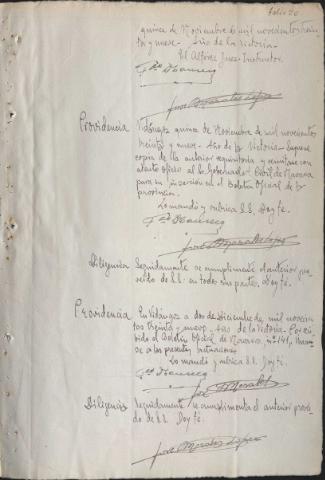 folio 20
quince de Noviembre de mil novecientos trein-
ta y nueve - Año de la Victoria.-
El Alférez Juez-Instructor.
José Morales López
Providencia Vidángoz quince de Noviembre de mil novecientos
treinta y nueve - Año de la Victoria - Saquese
copia de la anterior requisitoria y remítase con
atento oficio al Sr Gobernador Civil de Navarra
para su inserción en el Boletín Oficial de la
provincia.
Lo mandó y rubrica S.S. Doy fé.
José Morales López
Diligencia Seguidamente se cumplimenta el anterior pro-
veido de S.S. en todas sus partes. Doy fé.
José Morales López
Providencia En Vidángoz a dos de diciembre de mil novecien-
tos treinta y nueve - Año de la Victoria - Por reci-
bido el Boletín Oficial de Navarra nº 141, únase
se a las presentes actuaciones
Lo mandó y rubrica S.S. Doy fé.
José Morales
Diligencia Seguidamente se cumplimenta el anterior provei-
do de S.S. Doy fé.
José Morales López